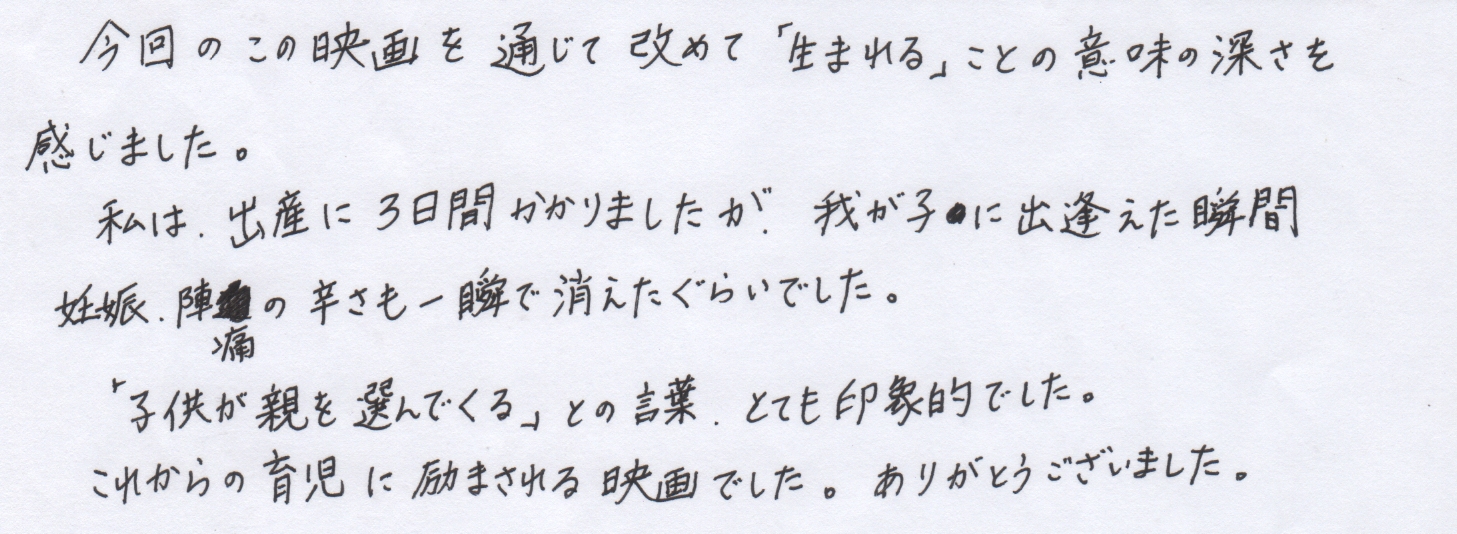 今回のこの映画を通じて改めて「生まれる」ことの意味の深さを
感じました。
私は、出産に3日間かかりましたが、我が子に出逢えた瞬間
妊娠、陣痛の辛さも一瞬で消えたぐらいでした。
「子供が親を選んでくる」との言葉、とても印象的でした。
これからの育児に励まされる映画でした。ありがとうございました。